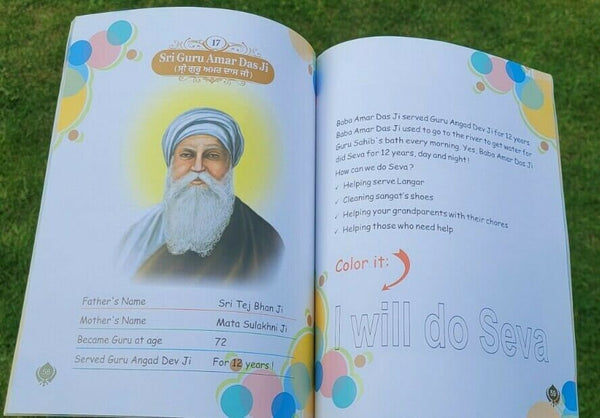 17
Sri Guru Amar Das Ji
(ਸ੍ਰੀ ਗੁਰੂ ਅਮਰ ਦਾਸ ਜੀ)
Father's Name Sri Tej Bhan Ji
Mother's Name Mata Sulakhni Ji
Became Guru at age 72
Served Guru Angad Dev Ji For 12 years!
58
Baba Amar Das Ji served Guru Angad Dev Ji for 12 years
Baba Amar Das Ji used to go to the river to get water for
Guru Sahib's bath every morning. Yes, Baba Amar Das Ji
did Seva for 12 years, day and night!
How can we do Seva?
✓ Helping serve Langar
✓ Cleaning sangat's shoes
✓ Helping your grandparents with their chores
✓ Helping those who need help
Color it:
I will do Seva
59